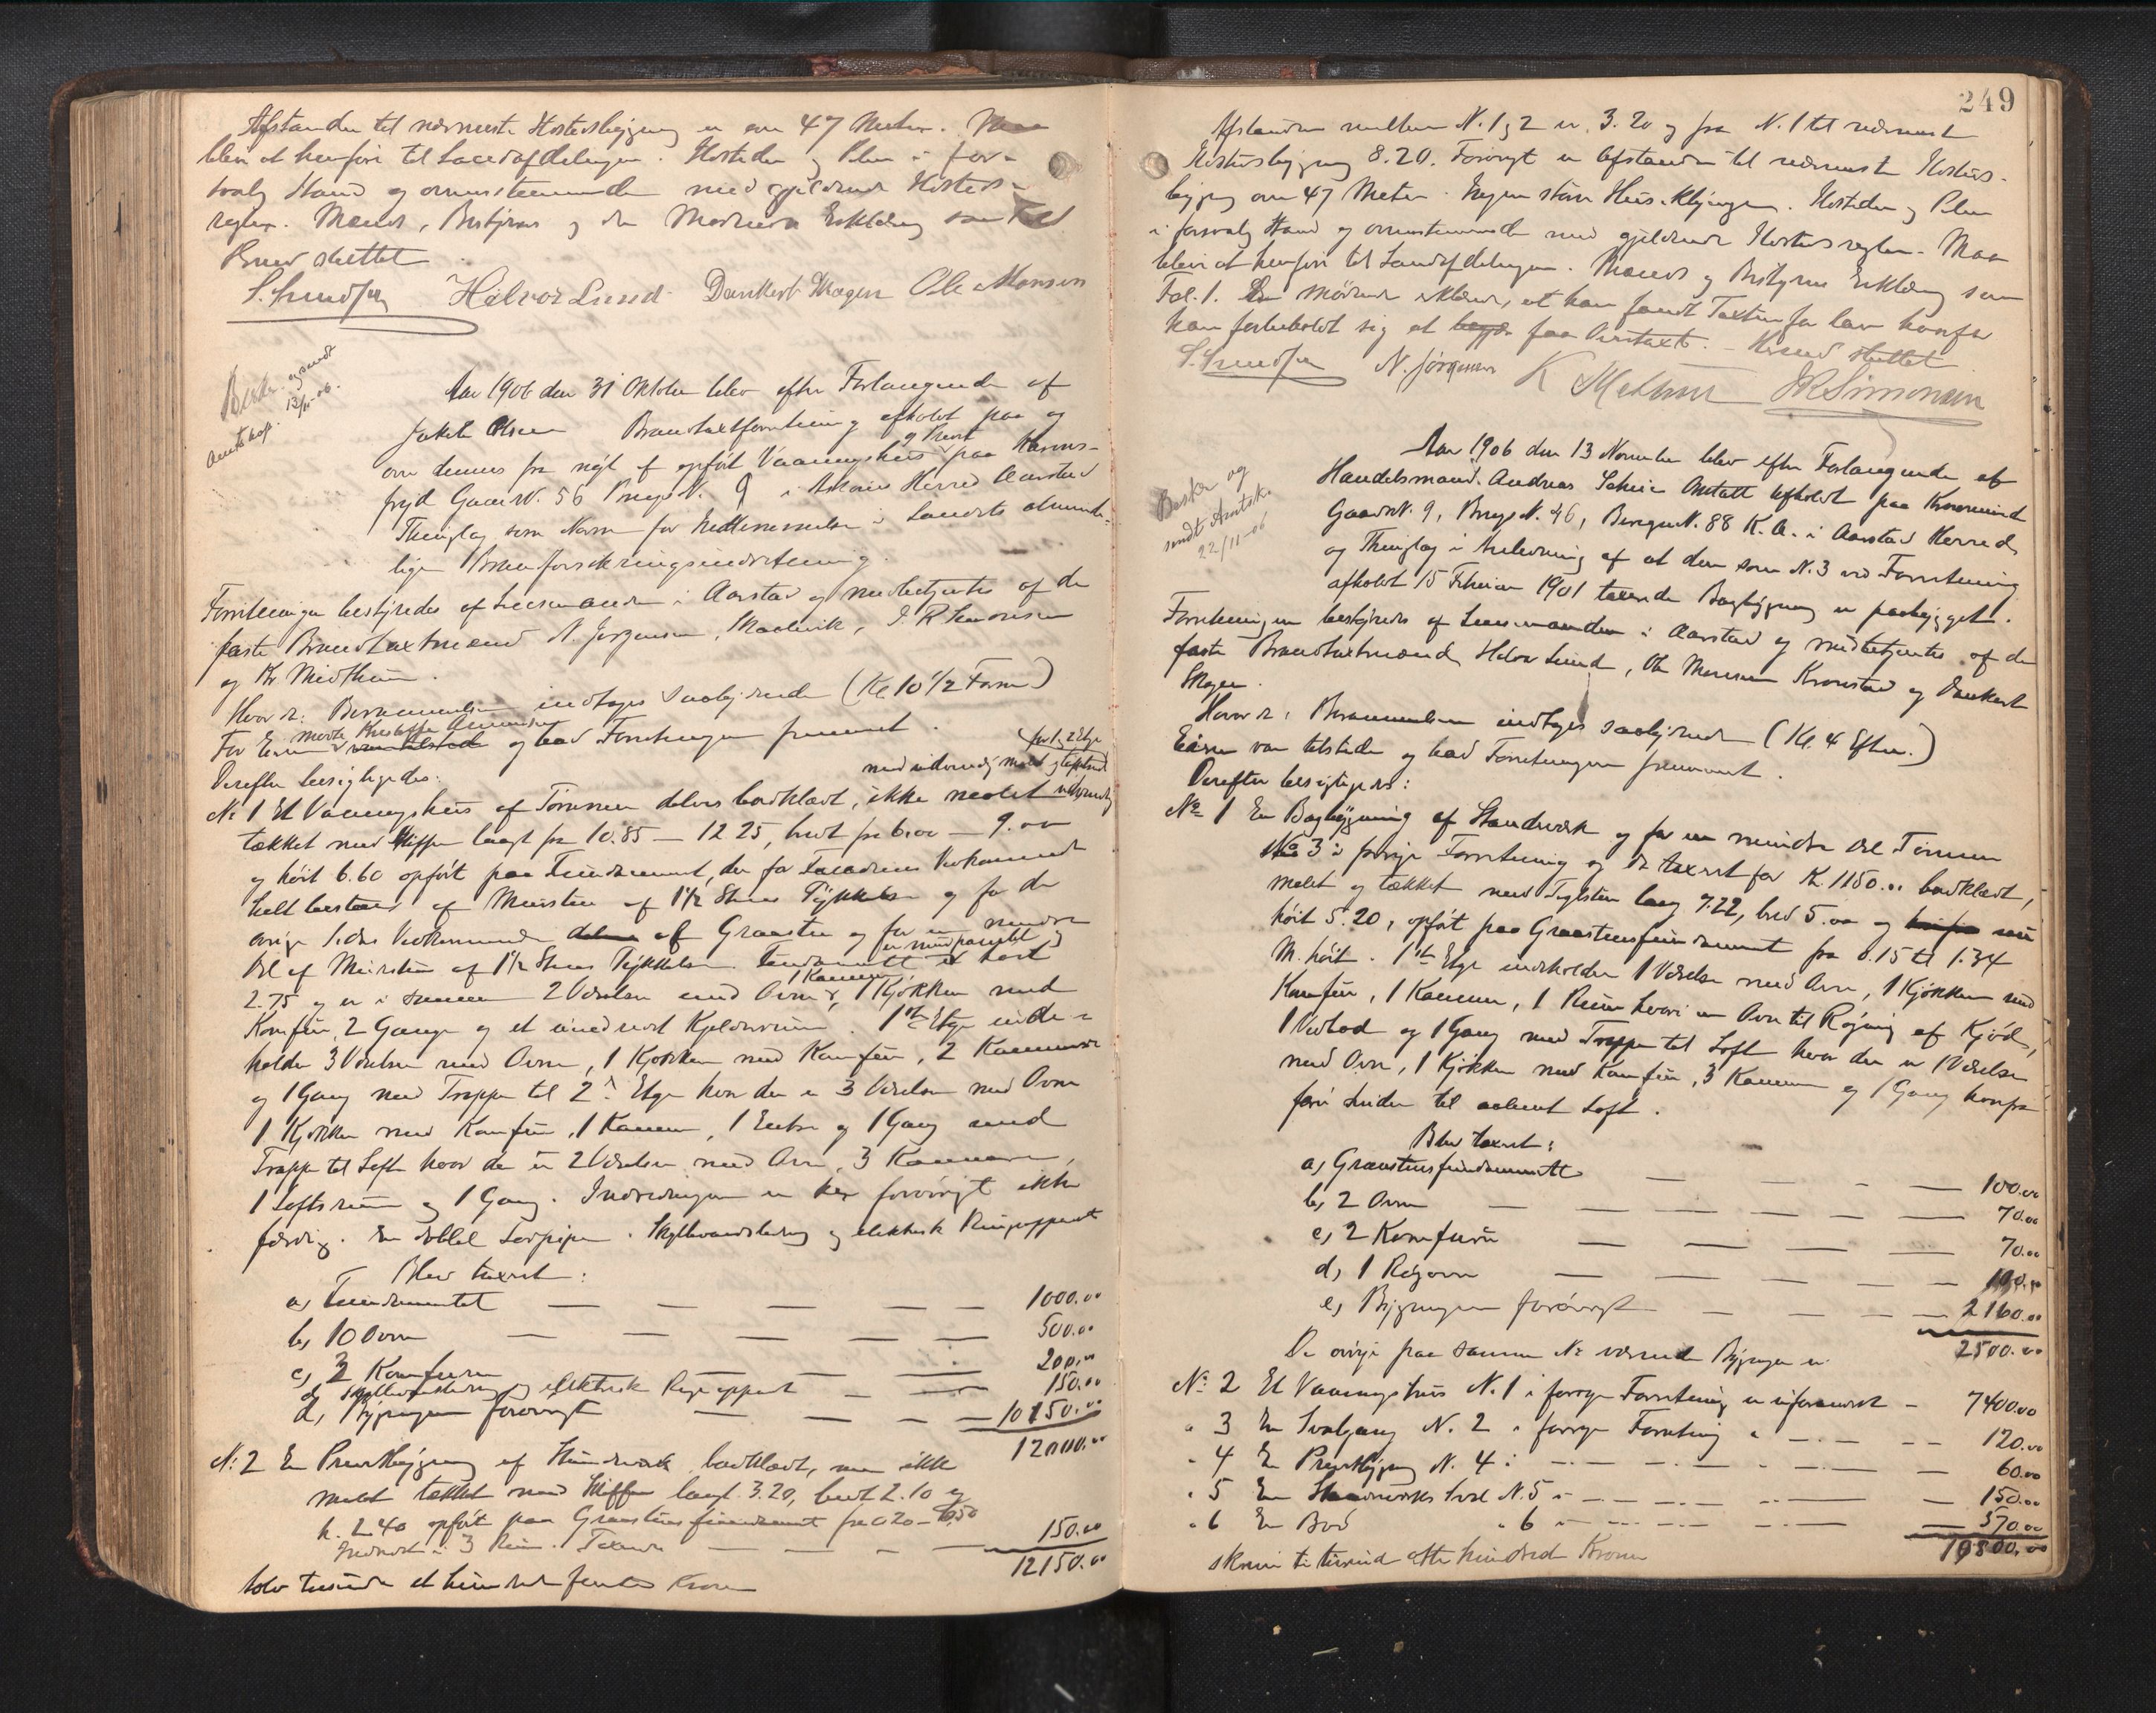 Afstanden til nærmeste Ilostedsbygning er over 47 Meter. Maa
blive at henføre til Landafdelingen. Ildsteder og Piber i for-
svarlig Stand og overensstemmende med gjeldende Ildsteds-
regler. Mænds, Bestyrers og de Mødendes Erklæring som Fol
Brevd sluttet
Halvor Lund Dankert Skagen Ole Monsen
13/11-06.
Aar 1906 den 31 Oktober blev efter Forlangende af
Jakob Olsen Brandtaxtforretning afholdt paa og
over dennes fra nyt af opført Vaaningshus og Privet paa
Gaards N. 56 Brugs N. 9 i Herred Aarstad
Thinglag som Norm for i Landets alminde-
lige Brandforsikringsindretning.
Forretningen bestyredes af Lensmanden i Aarstad og medbetjentes af de
faste Brandtaxtmænd N. Jørgensen, J. R. Simonsen
og Kr. Midthun.
Hvor da: Berammelsen indtages saalydende (Kl. 10 1/2 Form.)
For Eieren mødte og bad Forretningen fremmet.
Derefter besigtigedes:
No 1 Et Vaaningshus af Tømmer delvis bordklædt, ikke malet udvendig
tækket med Skiffer langt fra 10.85 — 12.25, bredt fra 6.00 — 9.00
og høit 6.60 opført paa Fundament, der for Facadens Vedkommende
helt bestaar af Mursten af 1 1/2 Stens Tykkelse og for de
øvrige Siders Vedkommende af Graasten og for en mindre
Del af Mursten af 1 1/2 Stens Tykkelse. Fundamentet er høit
2.75 og er i samme 2 Værelser med Ovn, 1 Kammer, 1 Kjøkken med
Komfur, 2 Gange og et indredet Kjelderrum. 1ste Etage inde-
holder 3 Værelser med Ovn, 1 Kjøkken med Komfur, 2 Kammere
og 1 Gang med Trappe til 2den Etage hvor der er 3 Værelser med Ovn
1 Kjøkken med Komfur, 1 Kammer, 1 Entre og 1 Gang med
Trappe til Loft hvor der er 2 Værelser med Ovn, 3 Kammere,
1 Loftsrum og 1 Gang. Indredningen er her forøvrigt ikke
færdig. En dobbel Løvpipe. Skyllevandsledning og elektrisk Ringeapparat
Blev taxeret:
a, Fundamentet — — — — — 1000.00
b, 10 Ovne — — — — — 500.00
c, 3 Komfurer 200.00
d, Skyllevandsledning og elektrisk Ringeapparat — — 150.00
d, Bygningen forøvrigt — — — — 10150.00
12000.00
No 2 En Privetbygning af Stenderværk bordklædt, men ikke
malet tækket med Skiffer langt 3.20, bredt 2.10 og
h. 2.40 opført paa Graastensfundament fra 0.20 — 0.50
Indredet i 3 Rum. Taxeret — — — 150.00
12150.00
tolv tusinde et hundrede femti Kroner
249
Afstanden mellem N. 1 og 2 er 3.20 og fra N. 1 til nærmeste
Ildstedsbygning 8.20. Forøvrigt er Afstanden til nærmeste Ildsteds-
bygning over 47 Meter. Ingen større Hus-Klynger. Ildsteder og Piber
i forsvarlig Stand og overensstemmende med gjeldende Ildstedsregler. Maa
blive at henføre til Landafdelingen. Mænds og Bestyrers Erklæring som
Fol. 1. Den mødende erklærede, at han fandt Taxten for lav hvorfor
han forbeholdt sig at begjære faa Overtaxt. — Brevd sluttet
N. Jørgensen K Midthun JRSimonsen
Aar 1906 den 13 November blev efter Forlangende af
Handelsmand Andreas Schei Anstalt afholdt paa Kronminde
Gaards N. 9, Brugs N. 46, Bergens N. 88 K. A. i Aarstad Herred
og Thinglag i Anledning af at den som N. 3 ved Forretning
afholdt 15 Februar 1901 taxerede Bagbygning er paabygget.
Besk. og
sendt Amtsk.
22/11-06
Forretningen bestyredes af Lensmanden i Aarstad og medbetjentes af de
faste Brandtaxtmænd Halvor Lund, Ole Monsen Kronstad og Dankert
Skagen.
Hvor da: Berammelsen indtages saalydende (Kl. 4 Efterm.)
Eieren var tilstede og bad Forretningen fremmet.
Derefter besigtigedes:
No 1 En Bagbygning af Standværk og for en mindre Del Tømmer
No 3 i forrige Forretning og da taxeret for Kr. 1150.00 bordklædt,
malet og tækket med Teglsten lang 7.22, bred 5.00 og
høit 5.20, opført paa Graastensfundament fra 0.15 til 1.34
M. høit. 1ste Etage indeholder 1 Værelse med Ovn, 1 Kjøkken med
Komfur, 1 Kammer, 1 Rum hvori en Ovn til Røgning af Kjød,
1 Vedbod og 1 Gang med Trappe til Loft hvor der er 1 Værelse
med Ovn, 1 Kjøkken med Komfur, 3 Kammer og 1 Gang hvorfra
fører Stige til aabent Loft.
Blev taxeret:
a, Graastensfundamentet — — — — 100.00
b, 2 Ovne — — — — — 70.00
c, 2 Komfurer — — — — 70.00
d, 1 Røgovn — — — — 100.00
e, Bygningen forøvrigt — — — 2160.00
2500.00
De øvrige paa samme No værende Bygninger er
No 2 Et Vaaningshus N. 1 i forrige Forretning er uforandret — 7400.00
" 3 En Svalgang N. 2 i forrige Forretning — — — 120.00
" 4 En Privetbygning N. 4 i — — — 60.00
" 5 En Standværks Sval N. 5 i — — — 150.00
" 6 En Bod " 6 i — — — 570.00
10800.00
skriver ti tusind otte hundred Kroner